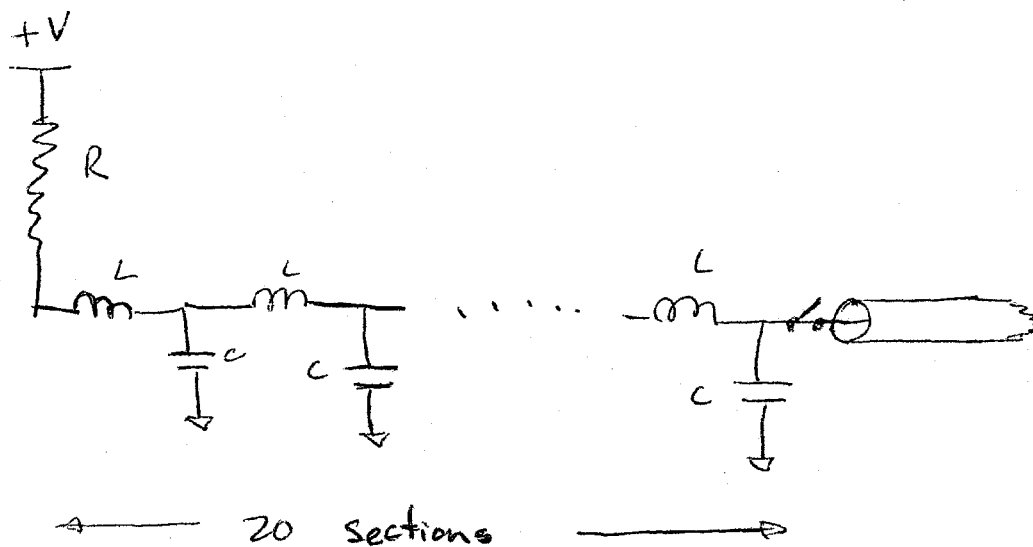 +V
R
L
L
L
C
C
C
20 sections